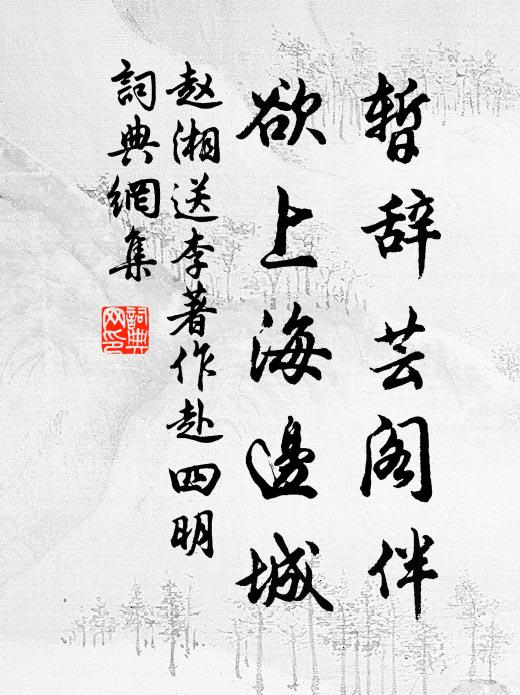 暫辞芸阁伴
欲上海邊城
赵湘送李著作赴四明
詞典網集
詞典网印